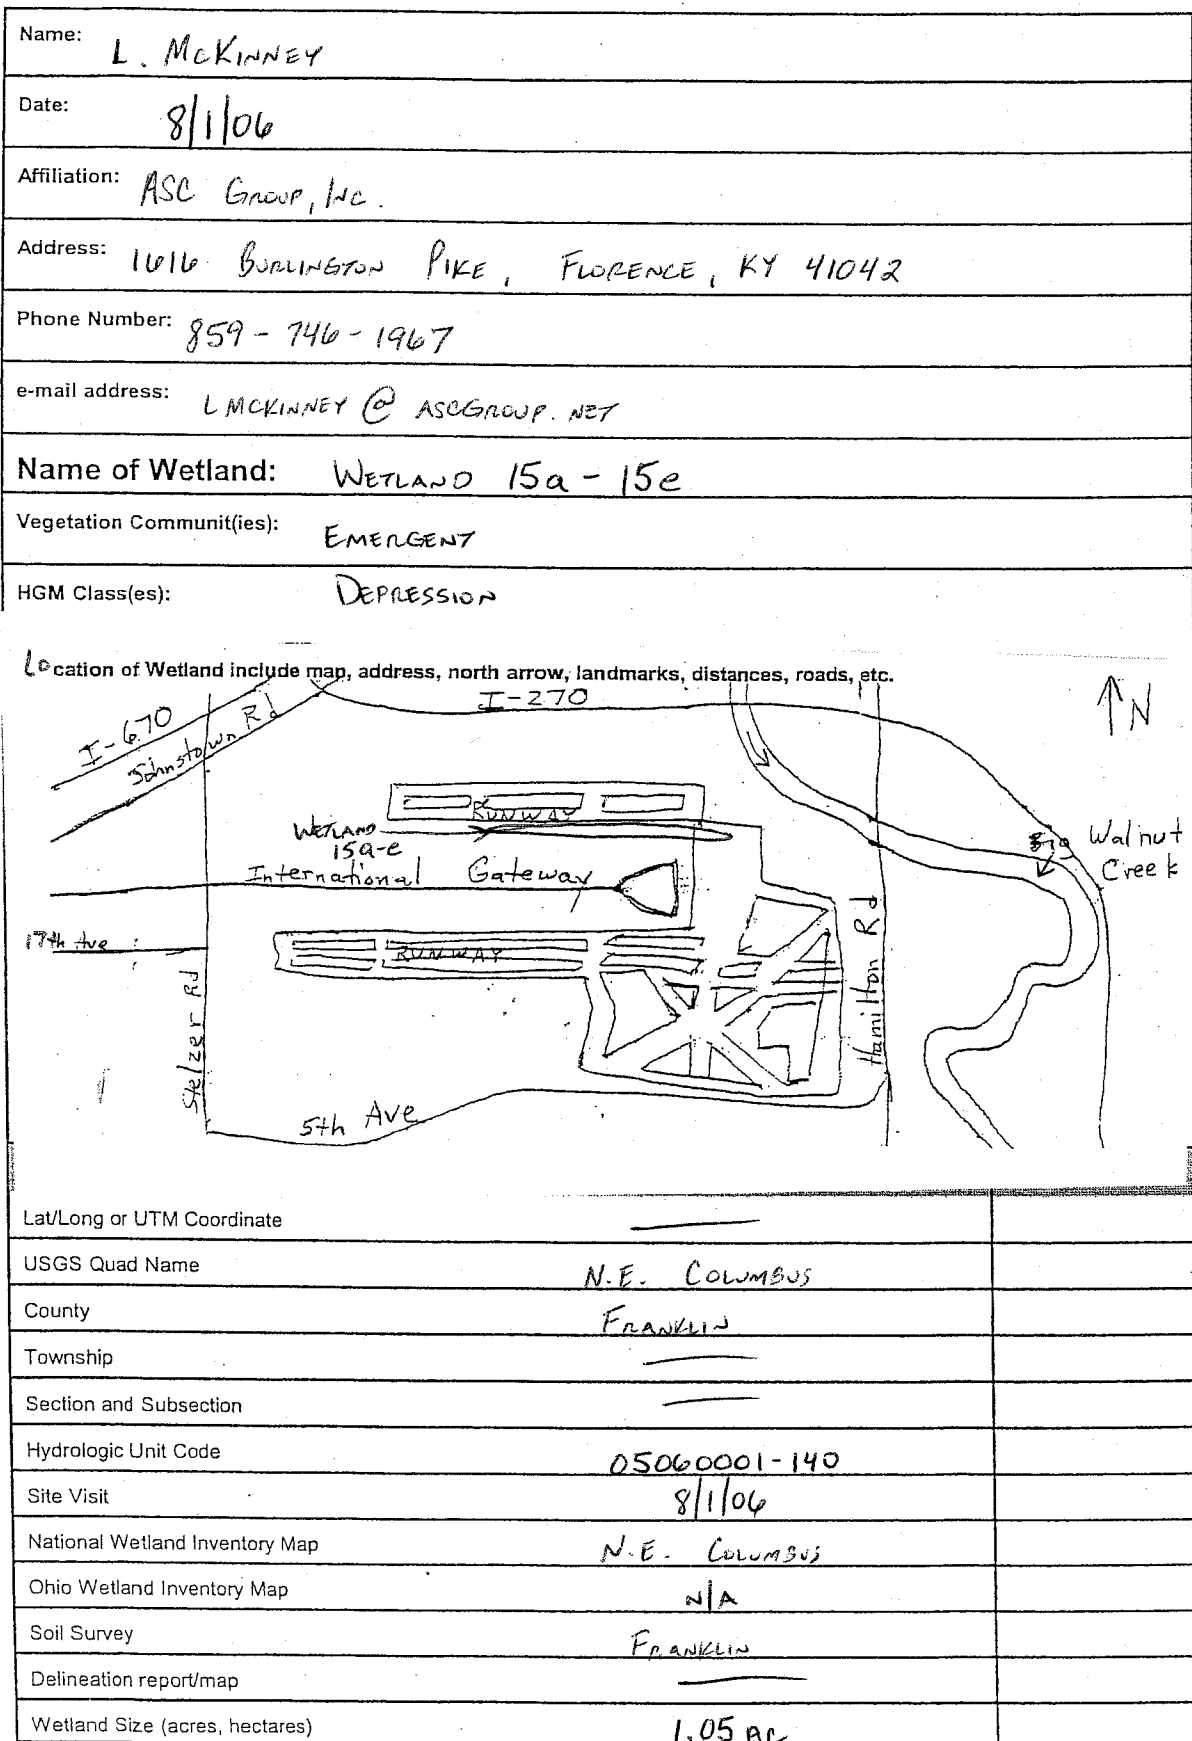 Name: L. McKinney
Date: 8/1/06
Affiliation: ASC Group, Inc.
Address: 1616 Burlington Pike, Florence, KY 41042
Phone Number: 859-746-1967
e-mail address: LMCKINNEY@ASCGROUP.NET
Name of Wetland: Wetland 15a-15e
Vegetation Communit(ies): Emergent
HGM Class(es): Depression
Location of Wetland include map, address, north arrow, landmarks, distances, roads, etc.
I-670
Johnstown Rd
I-270
N
RUNWAY
Wetland
15a-e
Big Walnut
Creek
International Gateway
17th Ave
RUNWAY
Stelzer Rd
Hamilton Rd
5th Ave
Lat/Long or UTM Coordinate —
USGS Quad Name N.E. Columbus
County Franklin
Township —
Section and Subsection —
Hydrologic Unit Code 05060001-140
Site Visit 8/1/06
National Wetland Inventory Map N.E. Columbus
Ohio Wetland Inventory Map N/A
Soil Survey Franklin
Delineation report/map —
Wetland Size (acres, hectares) 1.05 ac